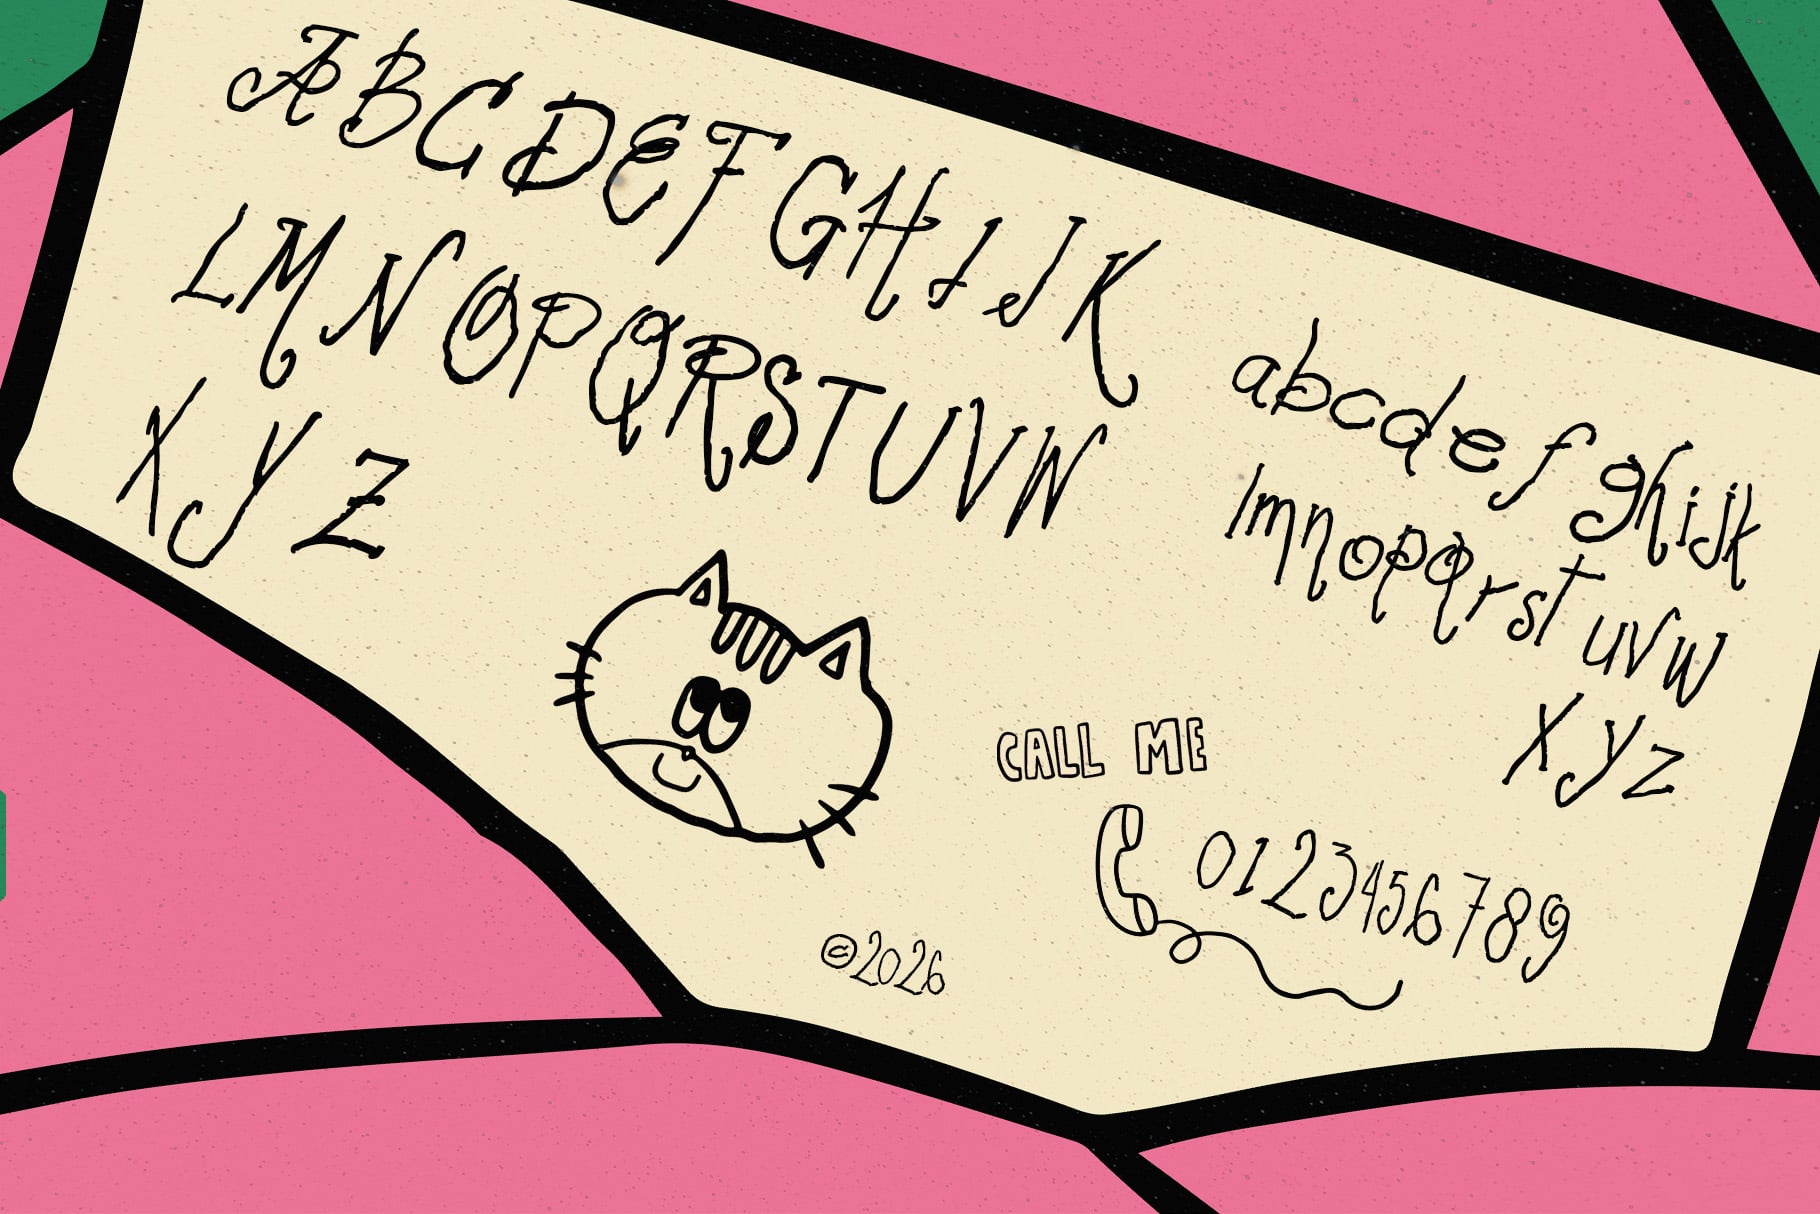 ABCDEFGHIJK
LMNOPQRSTUVW
XYZ
abcdefghijk
lmnopqrstuvw
xyz
CALL ME
0123456789
©2026